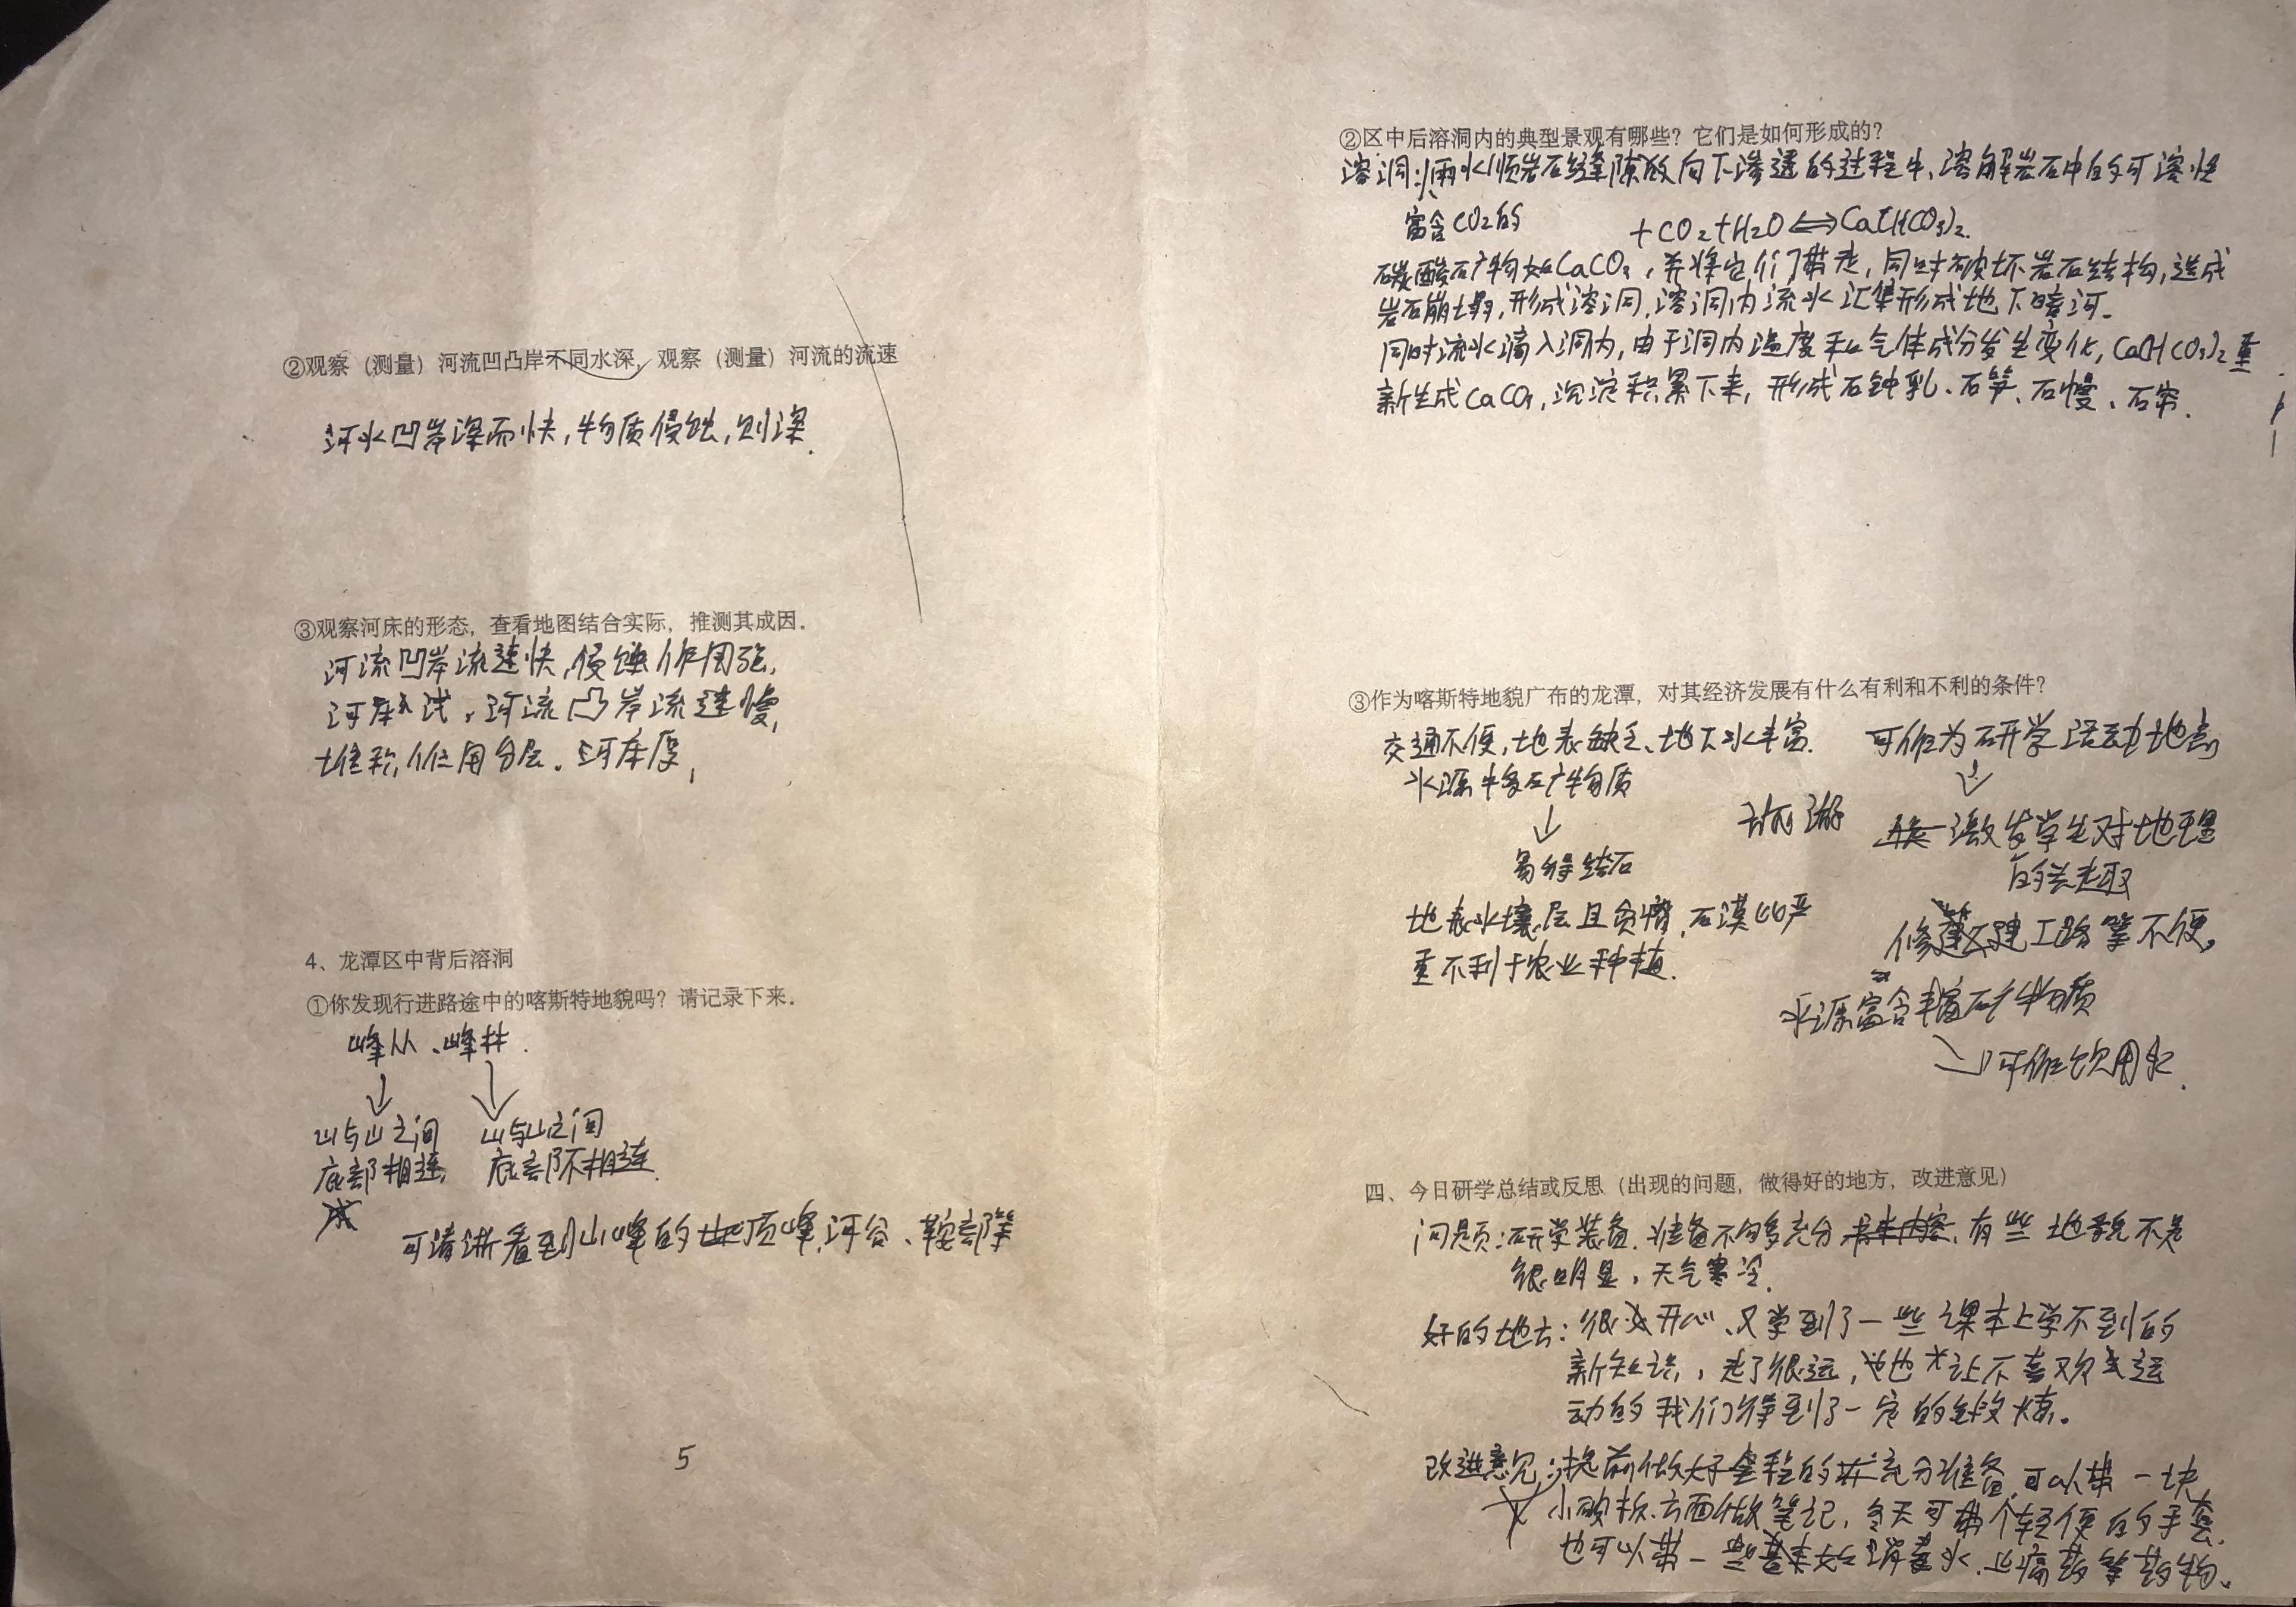 ②观察（测量）河流凹凸岸不同水深，观察（测量）河流的流速
河水凹岸深而快，物质侵蚀，则深.
③观察河床的形态，查看地图结合实际，推测其成因。
河流凹岸流速快，侵蚀作用强，
河床浅，河流凸岸流速慢，
堆积作用分层。河床厚，
4、龙潭区中背后溶洞
①你发现行进路途中的喀斯特地貌吗？请记录下来。
峰从、峰林.
山与山之间 山与山之间
底部相连， 底部不相连.
可清淅看到山峰的顶峰，河谷、鞍部等
5
②区中后溶洞内的典型景观有哪些？它们是如何形成的？
溶洞：雨水顺岩石缝隙向下渗透的过程中，溶解岩石中的可溶性
富含CO2的 +CO2+H2O⇌Ca(HCO3)2.
碳酸矿物如CaCO3，并将它们带走，同时破坏岩石结构，造成
岩石崩塌，形成溶洞，溶洞内流水汇集形成地下暗河.
同时流水滴入洞内，由于洞内温度和气体成分发生变化，Ca(HCO3)2重
新生成CaCO3，沉淀积累下来，形成石钟乳、石笋、石慢、石帘.
③作为喀斯特地貌广布的龙潭，对其经济发展有什么有利和不利的条件？
交通不便，地表缺乏、地下水丰富. 可作为研学活动地点
水源中多矿物质
旅游 激发学生对地理
易得结石 的兴趣
地表水壤层且贫瘠，石漠化严 修建工路等不便。
重不利于农业种植.
水源富含丰富矿物质
可作饮用水.
四、今日研学总结或反思（出现的问题，做得好的地方，改进意见）
问题：研学装备，准备不够充分，有些地貌不是
很明显，天气寒冷.
好的地方：很开心、又学到了一些课本上学不到的
新知识，走了很远，也让不喜欢运
动的我们得到了一定的锻炼。
改进意见：提前做充分准备，可以带一块
小硬板方面做笔记，冬天可带个轻便的手套，
也可以带一些消毒水，止痛药等药物。